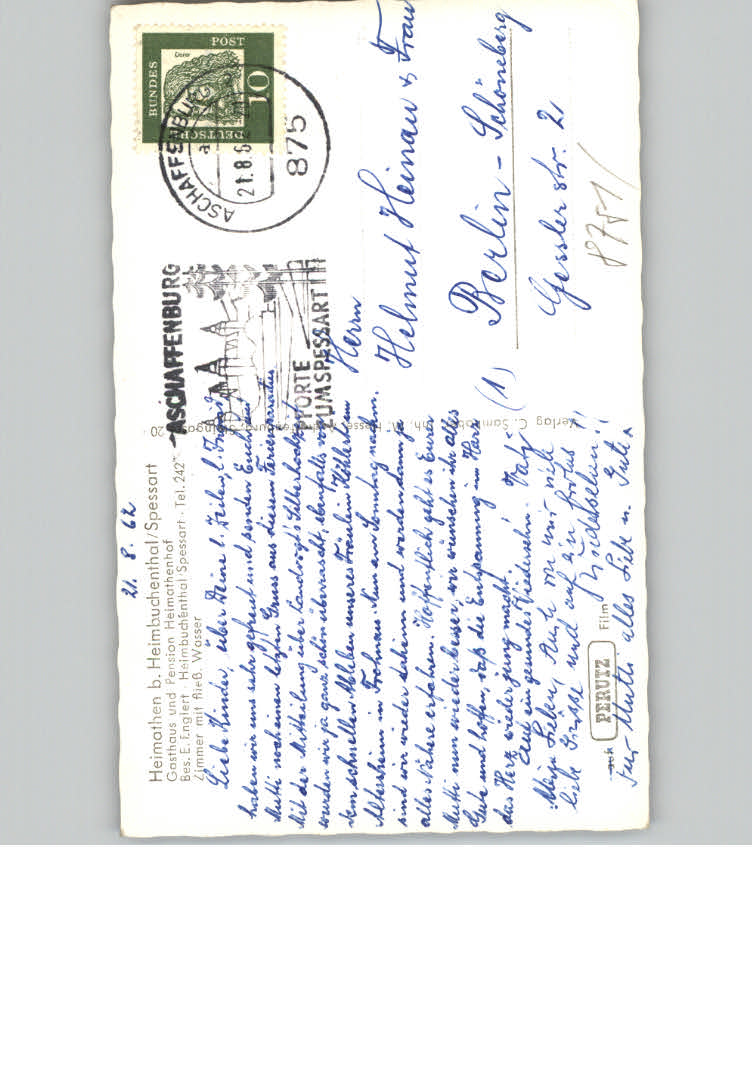 Heimathen b. Heimbuchenthal/Spessart
Gasthaus und Pension Heimathenhof
Bes. E. Englert · Heimbuchenthal/Spessart · Tel. 242
Zimmer mit fließ. Wasser
21. 8. 62
Liebe Kinder, über Deine l. Zeilen, l.
haben wir uns sehr gefreut und senden Euch
Mutti noch einen letzten Gruss aus diesem Ferienparadies
Mit der Mitteilung über Landvogt's Silberhochzeit
wurden wir ja ganz schön überrascht, ebenfalls von
dem schnellen Ableben unseres Fräulein Köhlert im
Altersheim in Frohnau. Nun am Sonntag nachm.
sind wir wieder daheim und werden dann ja
alles Nähere erfahren. Hoffentlich geht es Eurer
Mutti nun wieder besser, wir wünschen ihr alles
Gute und hoffen, daß die Entspannung im Harz
das Herz wieder jung macht.
Auch ein gesundes Wiedersehn.
Meine Lieben, Auch von mir viele
liebe Grüsse und auf ein frohes
Wiedersehen!!
Für Mutti alles Liebe u. Gute.
auf PERUTZ Film
Verlag C. Samhaber
20
DEUTSCHE BUNDESPOST
10
Dürer
ASCHAFFENBURG
21.8.6
875
ASCHAFFENBURG
PFORTE
ZUM SPESSART
Herrn
Helmut Heinau & Frau
(1) Berlin-Schöneberg
Gessler str. 2
8751/